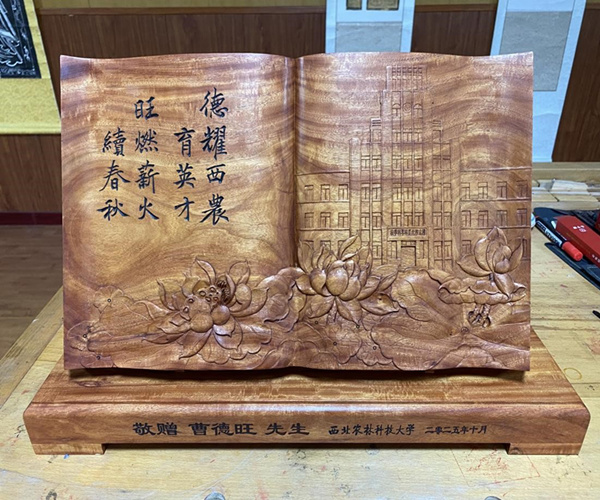 德耀西農
育英才
旺燃薪火
續春秋
敬赠 曹德旺 先生 西北农林科技大学 二〇二五年十月